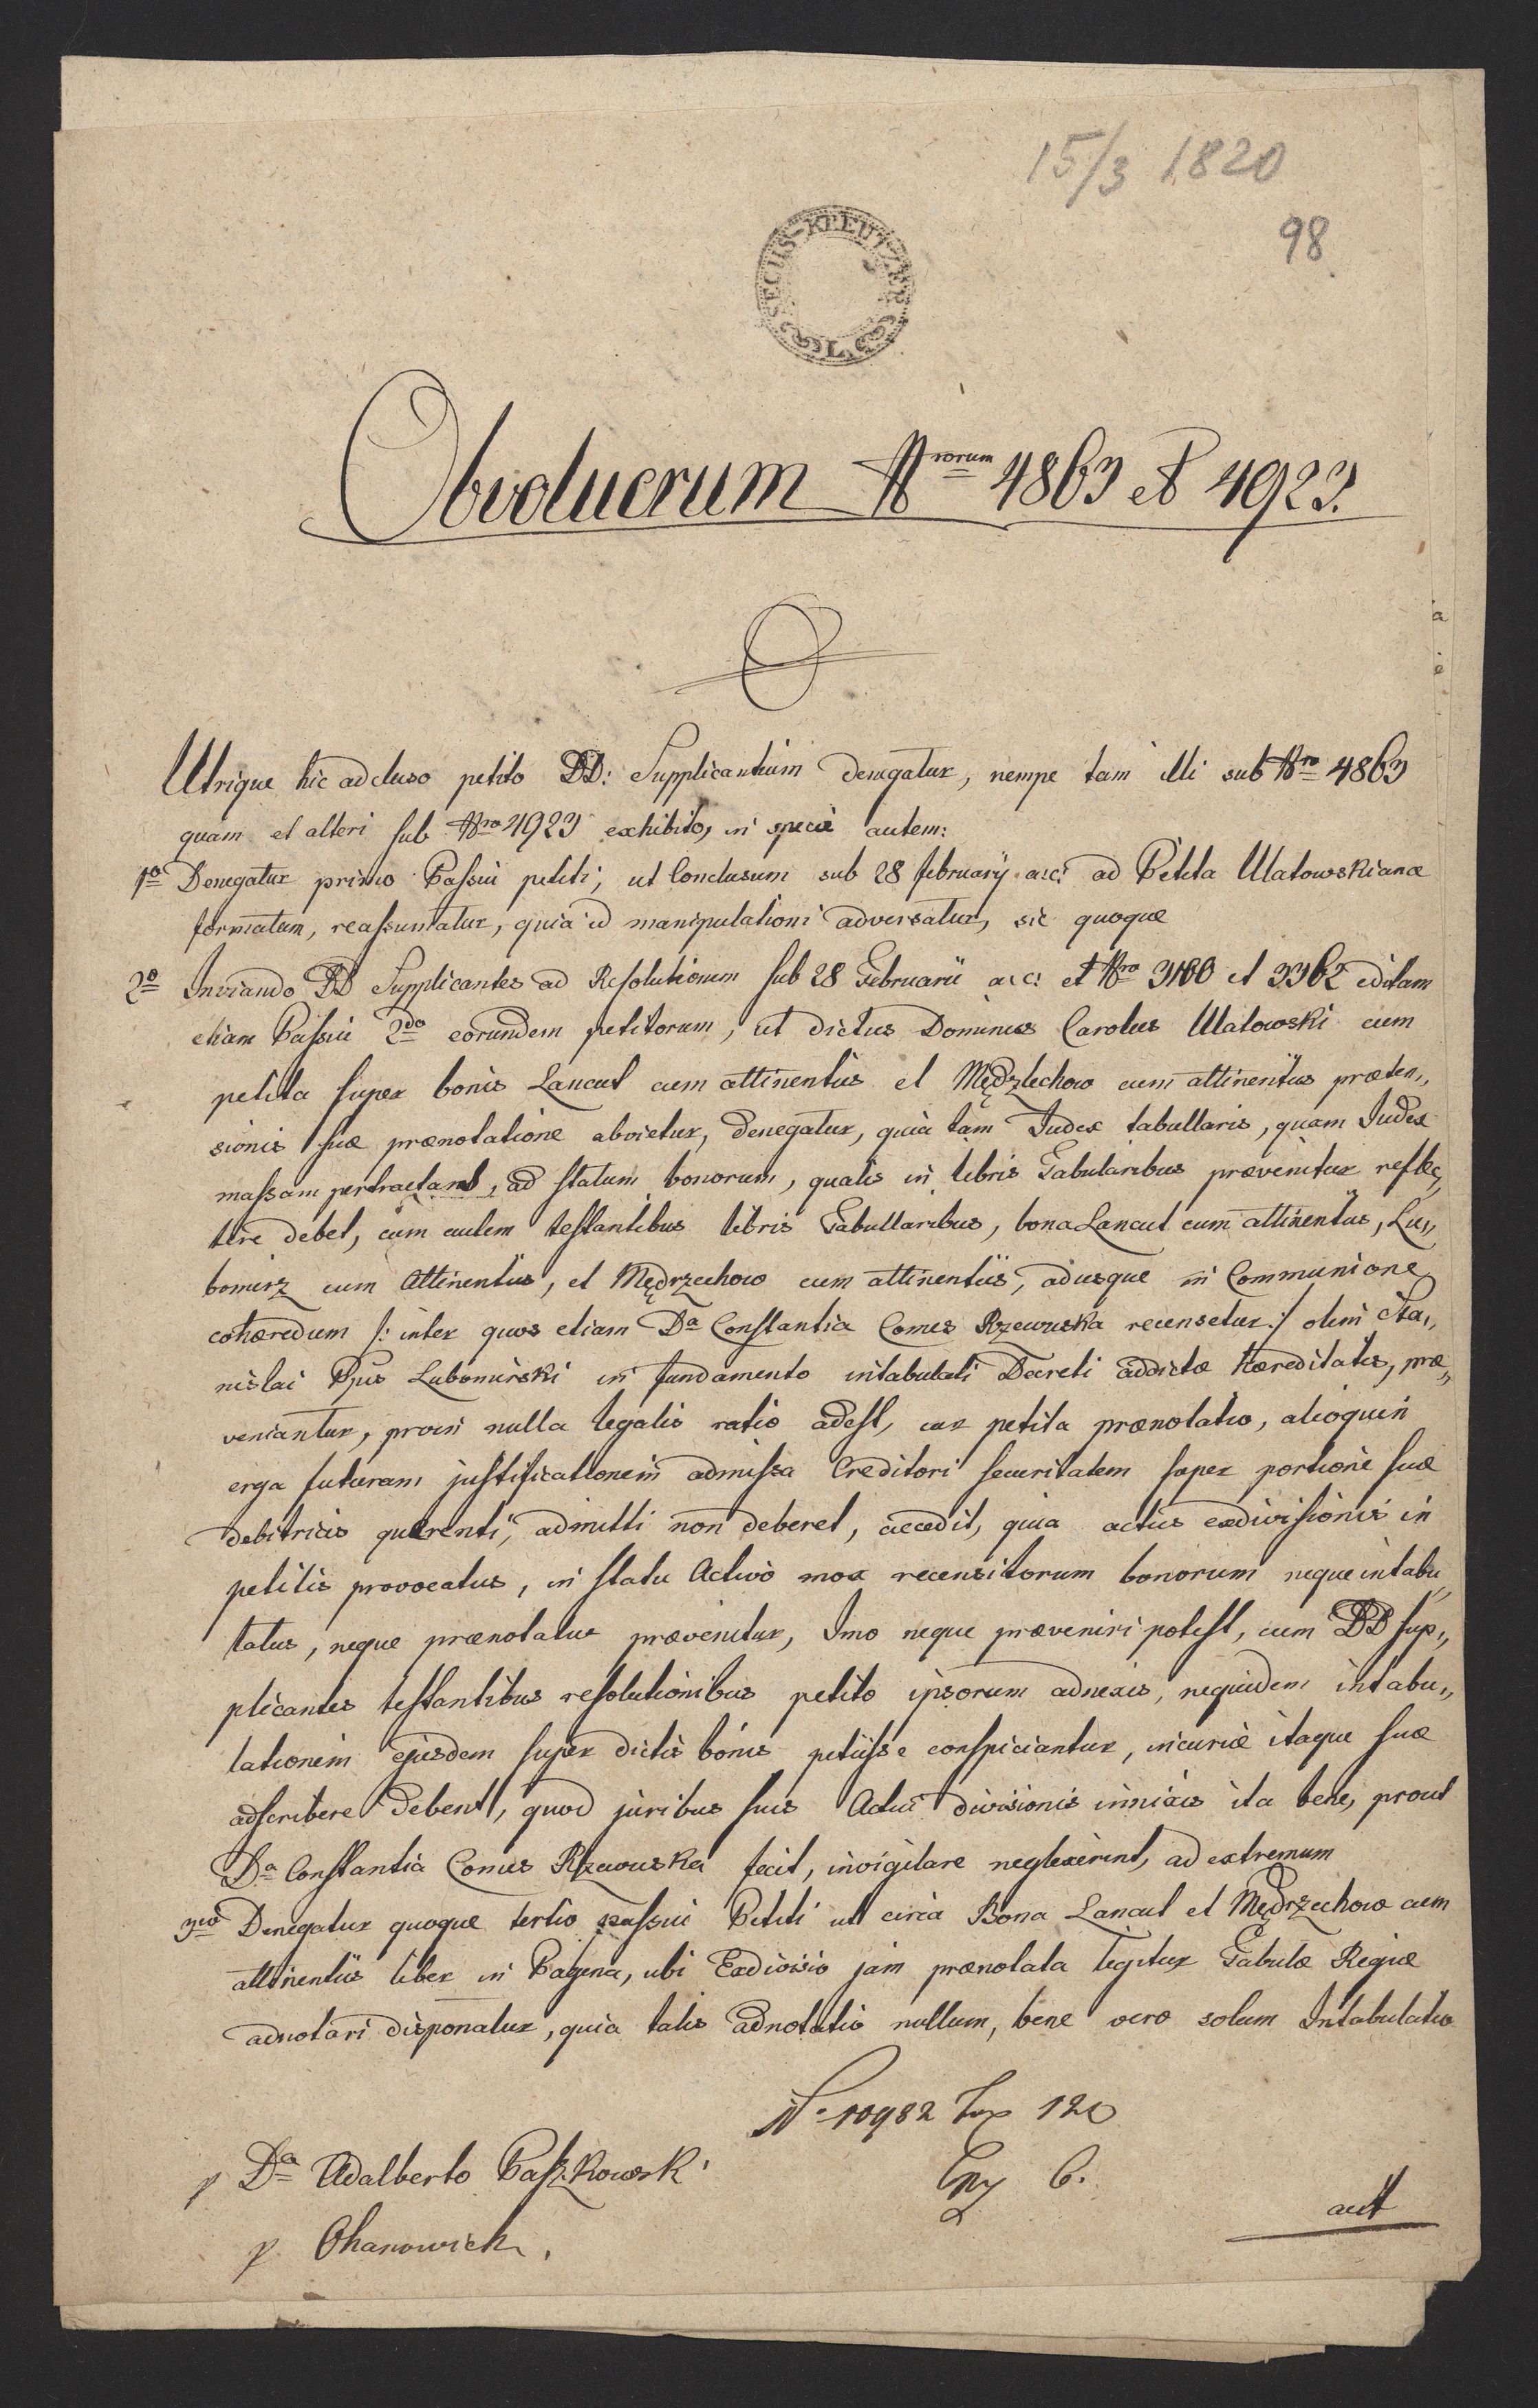 15/3 1820
98
SECHS-KREUTZER
Obvolucrum Nrorum 4863 et 4923.
Utrique hic adcluso petito DD: Supplicantium denegatur, nempe tam illi sub Nro 4863
quam et alteri sub Nro 4923 exhibito, in specie autem:
1o Denegatur primo Passui petiti, ut Conclusum sub 28 februarÿ a: c: ad Petita Ulatowskianæ
formatum, reassumatur, quia id manipulationi adversatur, sic quoque
2o Inviando DD Supplicantes ad Resolutionem sub 28 Februarii a: c: et Nro 3100 et 3362 editam
etiam Passui 2do eorundem petitorum, ut dictus Dominus Carolus Ulatowski cum
petita super bonis Lancut cum attinentiis et Mędrzechow cum attinentiis præten„
sionis suæ prænotatione abvietur, denegatur, quia tam Judex tabullaris, quam Judex
massam pertractans, ad statum bonorum, qualis in libris Tabularibus prævenitur reflec„
tere debet, cum autem testantibus libris Tabullaribus, bona Lancut cum attinentiis, Lu„
bomirz cum Attinentiis, et Mędrzechow cum attinentiis, adusque in Communione
cohæredum /: inter quos etiam Da Constantia Comes Rzewuska recensetur :/ olim Sta„
nislai Ppis Lubomirski in fundamento intabulati Decreti addictæ Hæreditatis, præ„
veniantur, proin nulla legalis ratio adest, cur petita prænotatio, alioquin
erga futuram justificationem admissa Creditori securitatem super portione suæ
debitricis quærenti, admitti non deberet, accedit, quia actus exdivisionis in
petitis provocatus, in statu Activo mox recensitorum bonorum neque intabu„
latus, neque prænotatus prævenitur, Imo neque præveniri potest, cum DD sup„
plicantes testantibus resolutionibus petito ipsorum adnexis, nequidem intabu„
lationem ejusdem super dictis bonis petiisse conspiciantur, incuriæ itaque suæ
adscribere debent, quod juribus suis Actui divisionis innixis ita bene, prout
Da Constantia Comes Rzewuska fecit, invigilare neglexerint, ad extremum
3tio Denegatur quoque tertio passui Petiti ut circa Bona Lancut et Mędrzechow cum
attinentiis liber in Pagina, ubi Exdivisio jam prænotata legitur Tabulæ Regiæ
adnotari disponatur, quia talis adnotatio nullum, bene vero solum Intabulatio
No 10982 Tax 120
p Da Adalberto Paszkowski
6.
aut
p. Ohanowich.